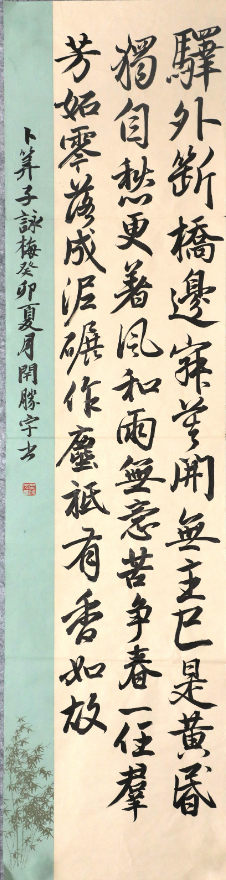 驛外斷橋邊寂莫開無主已是黃昏
獨自愁更著風和雨無意苦争春一任羣
芳妬零落成泥碾作塵祇有香如故
卜筭子詠梅癸卯夏月開勝宇书